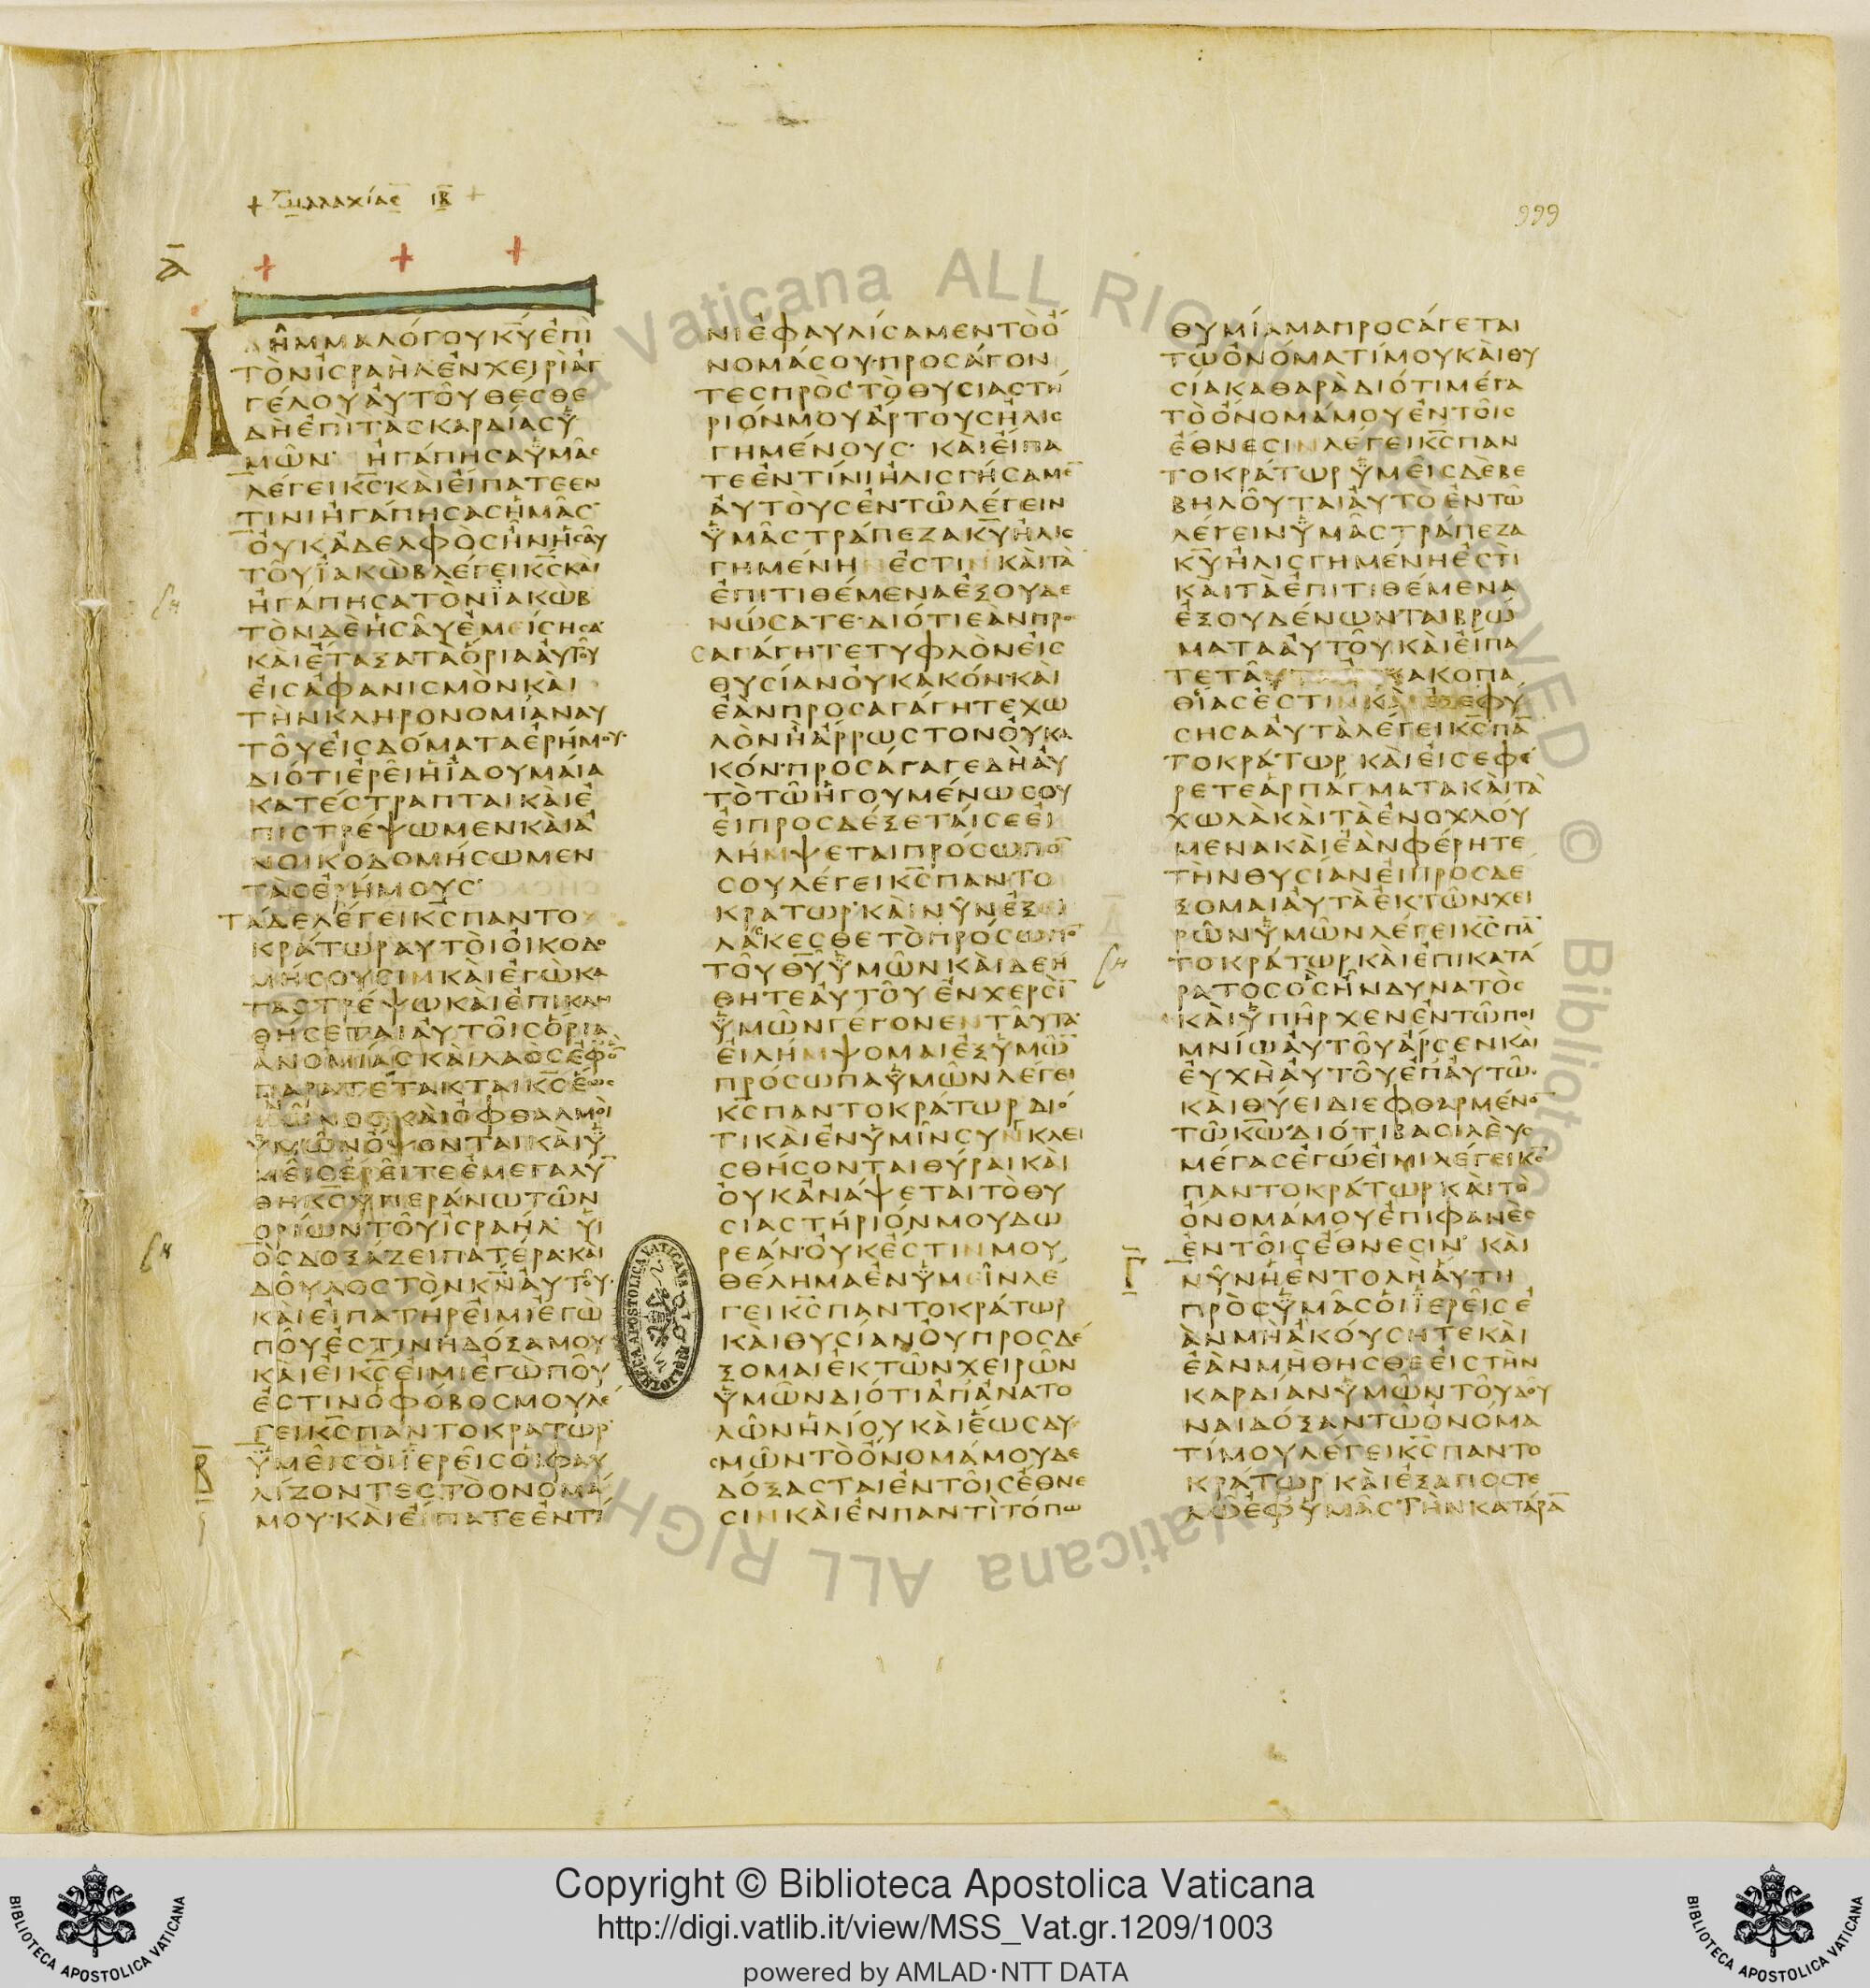 + μαλαχίας ΙΒ +
999
Α
ΛῆΜΜΑΛΌΓΟΥΚῩἘΠῚ
ΤῸΝἸΣΡΑῊΛἘΝΧΕΙΡῚἈΓ
ΓΈΛΟΥΑΥΤΟΥΘΕΣΘΕ
ΔΗΕΠΙΤΑΣΚΑΡΔΙΑΣΥ
ΜΩΝ ΗΓΑΠΗΣΑΥΜΑΣ
ΛΕΓΕΙΚΣ·ΚΑΙΕΙΠΑΤΕΕΝ
ΤΙΝΙΗΓΑΠΗΣΑΣΗΜΑΣ
ΟΥΚΑΔΕΛΦΟΣΗΝΗΣΑΥ
ΤΟΥΪΑΚΩΒΛΕΓΕΙΚΣΚΑΙ
ΗΓΑΠΗΣΑΤΟΝΪΑΚΩΒ
ΤΟΝΔΕΗΣΑΥΕΜΕΙΣΗΣΑ
ΚΑΙΕΤΑΞΑΤΑΟΡΙΑΑΥΤΟΥ
ΕΙΣΑΦΑΝΙΣΜΟΝΚΑΙ
ΤΗΝΚΛΗΡΟΝΟΜΙΑΝΑΥ
ΤΟΥΕΙΣΔΟΜΑΤΑΕΡΗΜΟΥ·
ΔΙΟΤΙΕΡΕΙΗΪΔΟΥΜΑΙΑ
ΚΑΤΕΣΤΡΑΠΤΑΙΚΑΙΕ
ΠΙΣΤΡΕΨΩΜΕΝΚΑΙΑ
ΝΟΙΚΟΔΟΜΗΣΩΜΕΝ
ΤΑΣΕΡΗΜΟΥΣ
ΤΑΔΕΛΕΓΕΙΚΣΠΑΝΤΟ
ΚΡΑΤΩΡΑΥΤΟΙΟΙΚΟΔΟ
ΜΗΣΟΥΣΙΝΚΑΙΕΓΩΚΑ
ΤΑΣΤΡΕΨΩΚΑΙΕΠΙΚΛΗ
ΘΗΣΕΤΑΙΑΥΤΟΙΣΟΡΙΑ
ΑΝΟΜΙΑΣΚΑΙΛΑΟΣΕΦΟΝ
ΠΑΡΑΤΕΤΑΚΤΑΙΚΣΕΩΣ
ΑΙΩΝΟΣΚΑΙΟΦΘΑΛΜΟΙ
ΥΜΩΝΟΨΟΝΤΑΙΚΑΙΥ
ΜΕΙΣΕΡΕΙΤΕΕΜΕΓΑΛΥ
ΘΗΚΣΥΠΕΡΑΝΩΤΩΝ
ΟΡΙΩΝΤΟΥΙΣΡΑΗΛ ΥΙ
ΟΣΔΟΞΑΖΕΙΠΑΤΕΡΑΚΑΙ
ΔΟΥΛΟΣΤΟΝΚΝΑΥΤΟΥ·
ΚΑΙΕΙΠΑΤΗΡΕΙΜΙΕΓΩ
ΠΟΥΕΣΤΙΝΗΔΟΞΑΜΟΥ
ΚΑΙΕΙΚΣΕΙΜΙΕΓΩΠΟΥ
ΕΣΤΙΝΟΦΟΒΟΣΜΟΥΛΕ
ΓΕΙΚΣΠΑΝΤΟΚΡΑΤΩΡ
Β ΥΜΕΙΣΟΙΪΕΡΕΙΣΟΙΦΑΥ
ΛΙΖΟΝΤΕΣΤΟΟΝΟΜΑ
ΜΟΥ·ΚΑΙΕΙΠΑΤΕΕΝΤΙ
ΝΙΕΦΑΥΛΙΣΑΜΕΝΤΟΟ
ΝΟΜΑΣΟΥ·ΠΡΟΣΑΓΟΝ
ΤΕΣΠΡΟΣΤΟΘΥΣΙΑΣΤΗ
ΡΙΟΝΜΟΥΑΡΤΟΥΣΗΛΙΣ
ΓΗΜΕΝΟΥΣ· ΚΑΙΕΙΠΑ
ΤΕΕΝΤΙΝΙΗΛΙΣΓΗΣΑΜΕ̅
ΑΥΤΟΥΣΕΝΤΩΛΕΓΕΙΝ
ΥΜΑΣΤΡΑΠΕΖΑΚΥΗΛΙΣ
ΓΗΜΕΝΗ ΕΣΤΙΝΚΑΙΤΑ
ΕΠΙΤΙΘΕΜΕΝΑΕΞΟΥΔΕ
ΝΩΣΑΤΕ·ΔΙΟΤΙΕΑΝΠΡΟ
ΣΑΓΑΓΗΤΕΤΥΦΛΟΝΕΙΣ
ΘΥΣΙΑΝΟΥΚΑΚΟΝ·ΚΑΙ
ΕΑΝΠΡΟΣΑΓΑΓΗΤΕΧΩ
ΛΟΝΗΑΡΡΩΣΤΟΝΟΥΚΑ
ΚΟΝ·ΠΡΟΣΑΓΑΓΕΔΗΑΥ
ΤΟΤΩΗΓΟΥΜΕΝΩΣΟΥ
ΕΙΠΡΟΣΔΕΞΕΤΑΙΣΕΕΙ
ΛΗΜΨΕΤΑΙΠΡΟΣΩΠΟ̅
ΣΟΥΛΕΓΕΙΚΣΠΑΝΤΟ
ΚΡΑΤΩΡ·ΚΑΙΝΥΝΕΞΕΙ
ΛΑΣΚΕΣΘΕΤΟΠΡΟΣΩΠΟ̅
ΤΟΥΘΥΥΜΩΝΚΑΙΔΕΗ
ΘΗΤΕΑΥΤΟΥΕΝΧΕΡΣΙ̅
ΥΜΩΝΓΕΓΟΝΕΝΤΑΥΤΑ
ΕΙΛΗΜΨΟΜΑΙΕΞΥΜΩ̅
ΠΡΟΣΩΠΑΥΜΩΝΛΕΓΕΙ
ΚΣΠΑΝΤΟΚΡΑΤΩΡΔΙΟ
ΤΙΚΑΙΕΝΥΜΙΝΣΥΝΚΛΕΙ
ΣΘΗΣΟΝΤΑΙΘΥΡΑΙΚΑΙ
ΟΥΚΑΝΑΨΕΤΑΙΤΟΘΥ
ΣΙΑΣΤΗΡΙΟΝΜΟΥΔΩ
ΡΕΑΝ·ΟΥΚΕΣΤΙΝΜΟΥ
ΘΕΛΗΜΑΕΝΥΜΕΙΝΛΕ
ΓΕΙΚΣΠΑΝΤΟΚΡΑΤΩΡ
ΚΑΙΘΥΣΙΑΝΟΥΠΡΟΣΔΕ
ΞΟΜΑΙΕΚΤΩΝΧΕΙΡΩΝ
ΥΜΩΝΔΙΟΤΙΑΠΑΝΑΤΟ
ΛΩΝΗΛΙΟΥΚΑΙΕΩΣΔΥ
ΣΜΩΝΤΟΟΝΟΜΑΜΟΥΔΕ
ΔΟΞΑΣΤΑΙΕΝΤΟΙΣΕΘΝΕ
ΣΙΝΚΑΙΕΝΠΑΝΤΙΤΟΠΩ
ΘΥΜΙΑΜΑΠΡΟΣΑΓΕΤΑΙ
ΤΩΟΝΟΜΑΤΙΜΟΥΚΑΙΘΥ
ΣΙΑΚΑΘΑΡΑΔΙΟΤΙΜΕΓΑ
ΤΟΟΝΟΜΑΜΟΥΕΝΤΟΙΣ
ΕΘΝΕΣΙΝΛΕΓΕΙΚΣΠΑΝ
ΤΟΚΡΑΤΩΡΥΜΕΙΣΔΕΒΕ
ΒΗΛΟΥΤΑΙΑΥΤΟΕΝΤΩ
ΛΕΓΕΙΝΥΜΑΣΤΡΑΠΕΖΑ
ΚΥΗΛΙΣΓΗΜΕΝΗΕΣΤΙ
ΚΑΙΤΑΕΠΙΤΙΘΕΜΕΝΑ
ΕΞΟΥΔΕΝΩΝΤΑΙΒΡΩ
ΜΑΤΑΑΥΤΟΥΚΑΙΕΙΠΑ
ΤΕΤΑΥΤΑ ΚΑΚΟΠΑ
ΘΙΑΣΕΣΤΙΝΚΑΙΕΞΕΦΥ
ΣΗΣΑΑΥΤΑΛΕΓΕΙΚΣΠΑ̅
ΤΟΚΡΑΤΩΡ ΚΑΙΕΙΣΕΦΕ
ΡΕΤΕΑΡΠΑΓΜΑΤΑΚΑΙΤΑ
ΧΩΛΑΚΑΙΤΑΕΝΟΧΛΟΥ
ΜΕΝΑΚΑΙΕΑΝΦΕΡΗΤΕ
ΤΗΝΘΥΣΙΑΝΕΙΠΡΟΣΔΕ
ΞΟΜΑΙΑΥΤΑΕΚΤΩΝΧΕΙ
ΡΩΝΥΜΩΝΛΕΓΕΙΚΣΠΑ̅
ΤΟΚΡΑΤΩΡΚΑΙΕΠΙΚΑΤΑ
ΡΑΤΟΣΟΣΗΝΔΥΝΑΤΟΣ
ΚΑΙΥΠΗΡΧΕΝΕΝΤΩΠΟΙ
ΜΝΙΩΑΥΤΟΥΑΡΣΕΝΚΑΙ
ΕΥΧΗΑΥΤΟΥΕΠΑΥΤΩ·
ΚΑΙΘΥΕΙΔΙΕΦΘΑΡΜΕΝΟ̅
ΤΩΚΩΔΙΟΤΙΒΑΣΙΛΕΥΣ
ΜΕΓΑΣΕΓΩΕΙΜΙΛΕΓΕΙΚΣ
ΠΑΝΤΟΚΡΑΤΩΡΚΑΙΤΟ
ΟΝΟΜΑΜΟΥΕΠΙΦΑΝΕΣ
ΕΝΤΟΙΣΕΘΝΕΣΙΝ ΚΑΙ
Γ ΝΥΝΗΕΝΤΟΛΗΑΥΤΗ
ΠΡΟΣΥΜΑΣΟΙΪΕΡΕΙΣΕ
ΑΝΜΗΑΚΟΥΣΗΤΕΚΑΙ
ΕΑΝΜΗΘΗΣΘΕΕΙΣΤΗΝ
ΚΑΡΔΙΑΝΥΜΩΝΤΟΥΔΟΥ
ΝΑΙΔΟΞΑΝΤΩΟΝΟΜΑ
ΤΙΜΟΥΛΕΓΕΙΚΣΠΑΝΤΟ
ΚΡΑΤΩΡ ΚΑΙΕΞΑΠΟΣΤΕ
ΛΩΕΦΥΜΑΣΤΗΝΚΑΤΑΡΑ̅
Vaticana ALL RIGHTS RESERVED © Biblioteca Vaticana ALL RIGHTS
BIBLIOTECA APOSTOLICA VATICANA
Copyright © Biblioteca Apostolica Vaticana
http://digi.vatlib.it/view/MSS_Vat.gr.1209/1003
powered by AMLAD·NTT DATA
BIBLIOTECA APOSTOLICA VATICANA
BIBLIOTECA APOSTOLICA VATICANA